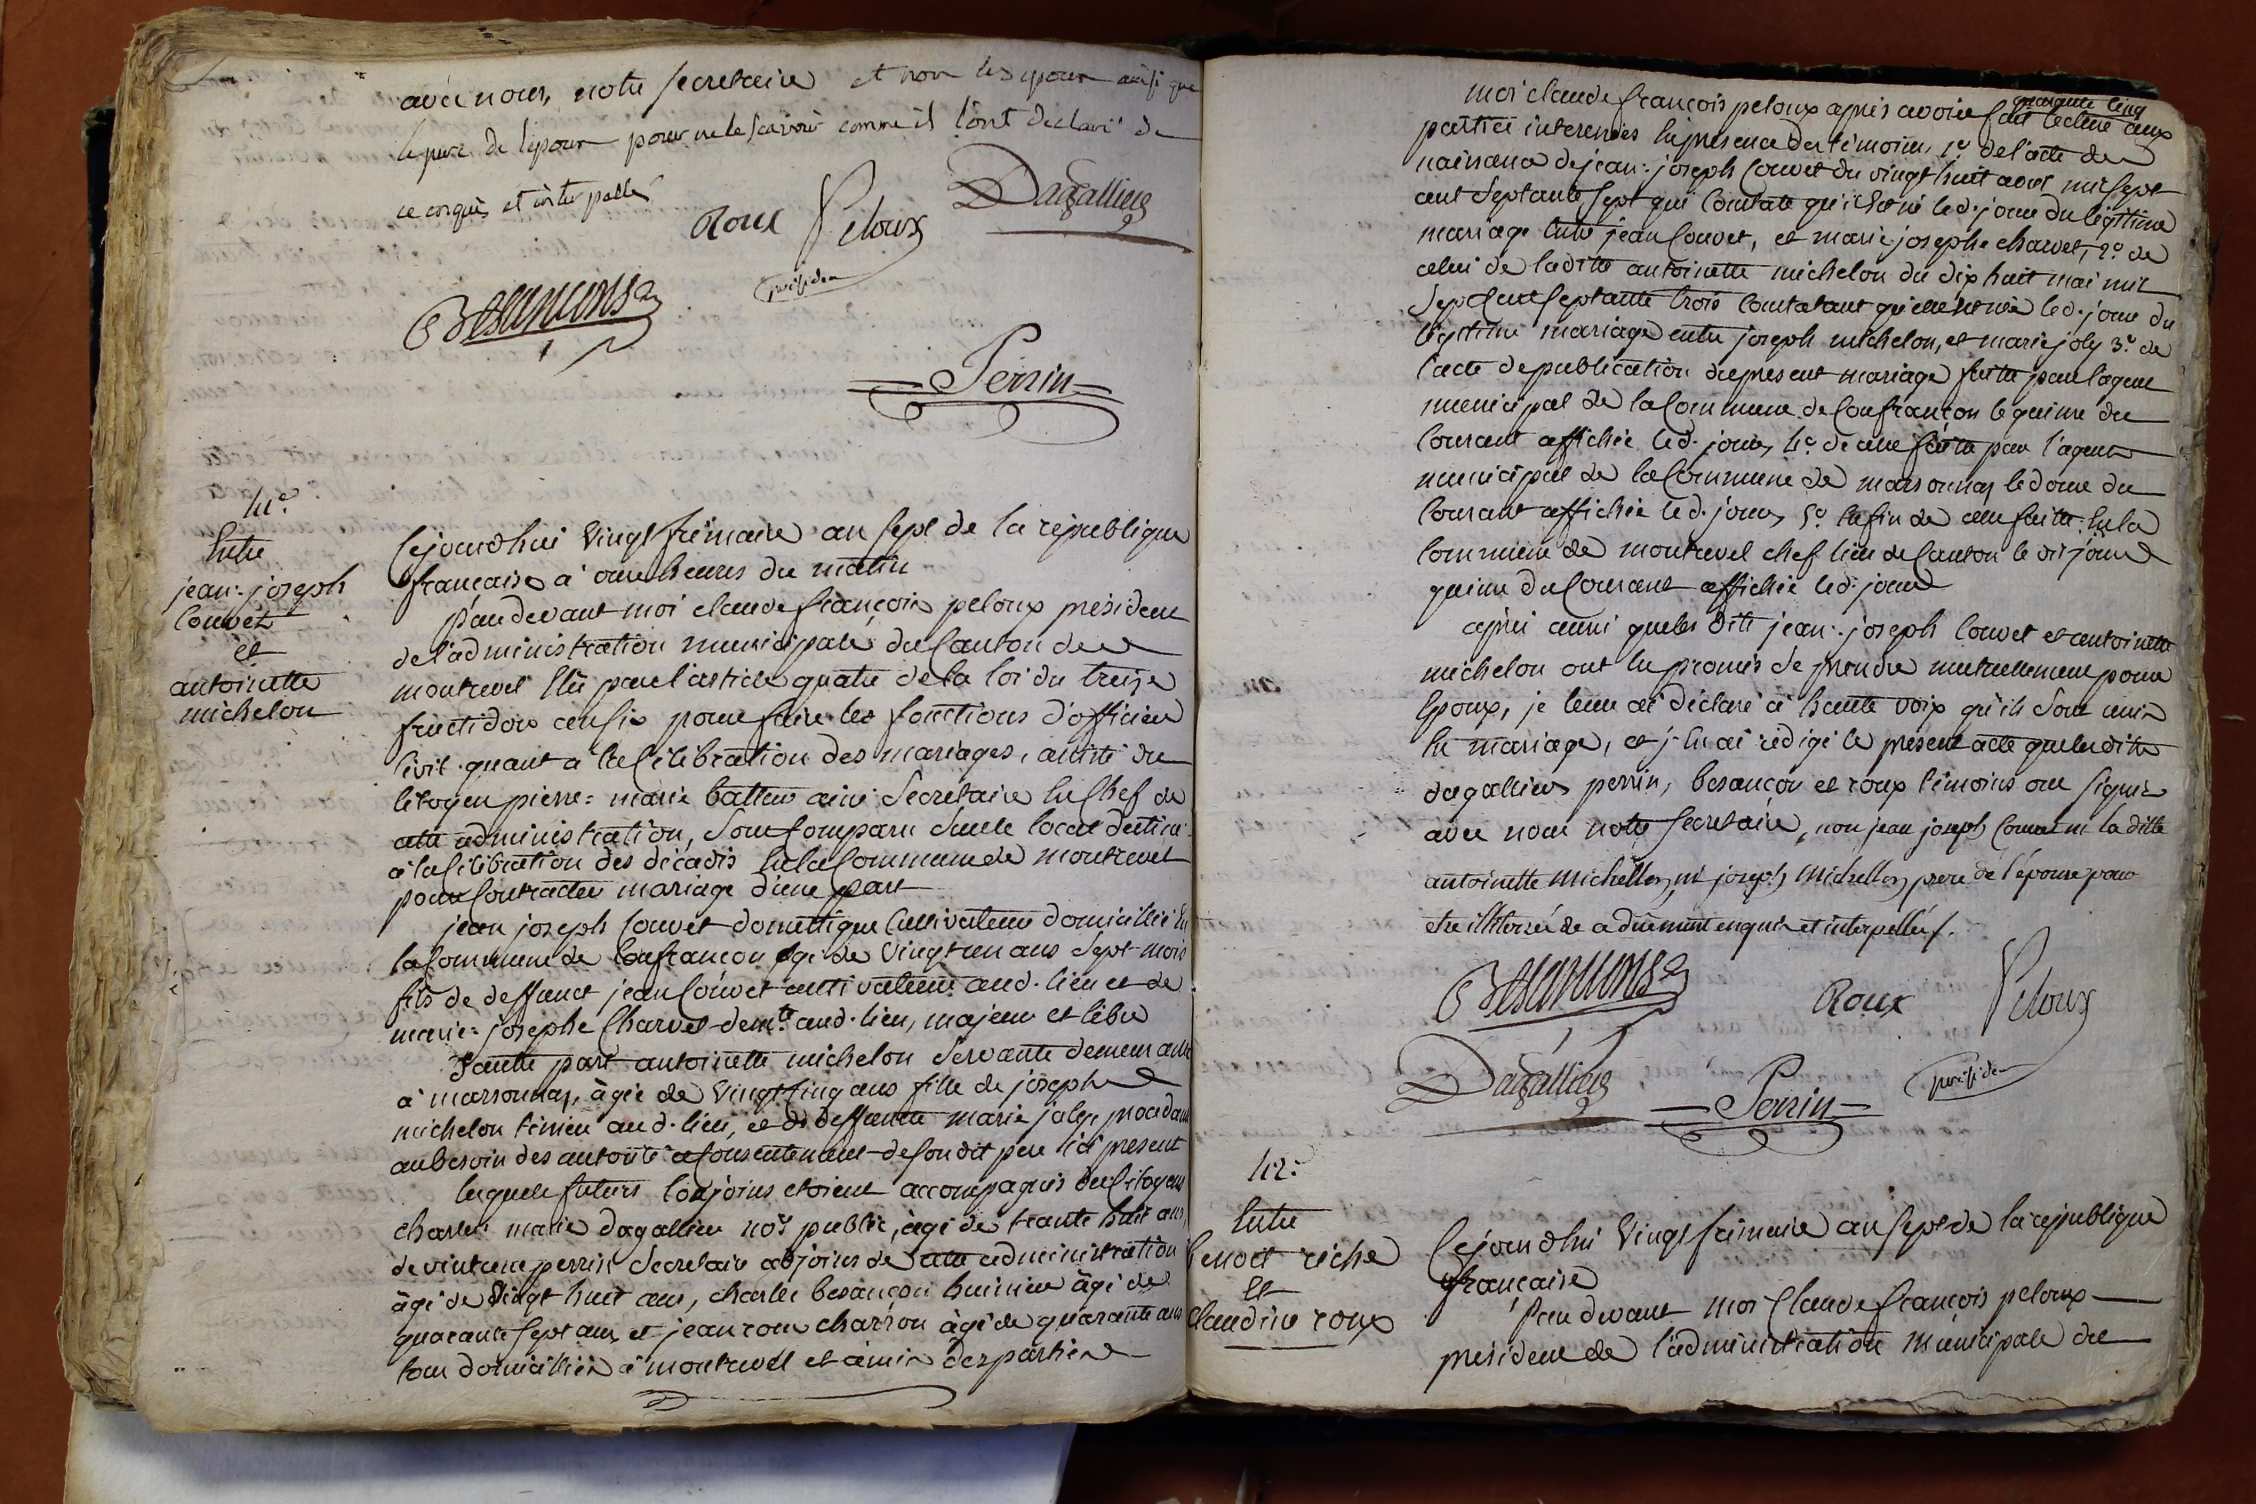 avec nous, notre secretaire et non les epoux ainsi que
le pere de l'epoux pour ne le scavoir comme ils l'ont declaré de
ce enquis et interpellé
Roux Peloux Dagallier
président
Besançons
Perrin
41e
Entre
jean-joseph
Couvet
et
antoinette
michelon
Cejourdhui Vingt frimaire an sept de la république
française à onze heures du matin
Pardevant moi claude françois peloux président
de l'administration municipale du Canton de
montrevel Elû par l'article quatre de la loi du treize
fructidor an six pour faire les fonctions d'officier
Civil quant a la Célébration des mariages, assisté du
Citoyen pierre-marie batteur ainé Secrétaire En Chef de
cette administration, Sont Comparu dans le local destiné
à la Célébration des décadis En la Commune de montrevel
pour Contracter mariage d'une part
jean joseph Couvet domestique Cultivateur domicilié En
la Commune de Confrançon agé de Vingt un ans Sept mois
fils de deffunct jean Couvet cultivateur aud. lieu et de
marie-josephe Charvet demte aud. lieu, majeur et libre
D'autre part antoinette michelon Servante demeurante
à marsonnas, àgée de Vingt Cinq ans fille de joseph
michelon fermier aud. lieu, et de deffunte marie joly, procedant
au besoin des autorité et Consentement de son dit pere ici present
lesquels futurs Conjoins etoient accompagnés des Citoyens
charles marie dagallier nore public, àgé de trante huit ans,
de vintcene perrin Secretaire adjoins de cette administration
àgé de Vingt huit ans, charles besançon huissier àgé de
quarante sept ans et jean roux charron àgé de quarante ans
tous domiciliés à montrevel et amis des parties
quarante cinq
moi claude françois peloux après avoir fait lecture aux
parties interessées En presence des témoins, 1e de l'acte de
naissance de jean-joseph Couvet du vingt huit avril mil sept
cent Septante Sept qui Constate qu'il est né led. jour du légitime
mariage Entre jean Couvet, et marie josephe charvet, 2e de
celui de laditte antoinette michelon du dix huit mai mil
Sept Cent Septante trois Constatant qu'elle est née led. jour du
légitime mariage entre joseph michelon, et marie joly 3e de
l'acte de publication du present mariage faitte par l'agent
municipal de la Commune de Confrançon le quinze du
Courant affichée led. jour, 4e de celle faitte par l'agent
municipal de la Commune de marsonnas le douze du
Courant affichée led. jour, 5e Enfin de celle faitte En la
Commune de montrevel chef lieu de Canton le dit jour
quinze du Courant affichée led. jour
après aussi que les dits jean-joseph Couvet et antoinette
michelon ont Eu promis de prendre mutuellement pour
Epoux, je leur ai déclaré à haute voix qu'ils sont unis
En mariage, et j'En ai rédigé le présent acte que lesdits
dagallier, perrin, besançon et roux témoins ont signés
avec nous notre secretaire, non jean joseph Couvet ni la ditte
antoinette michellon, ni joseph michellon, pere de l'épouse pour
etre illitterés de ce duement enquis et interpellés.
Besançons Roux Peloux
Dagallier Perrin président
42e
Entre
benoit riche
Et
Claudine roux
Cejourdhui Vingt frimaire an Sept de la république
française
Pardevant moi Claude françois peloux
president de l'administration municipale du